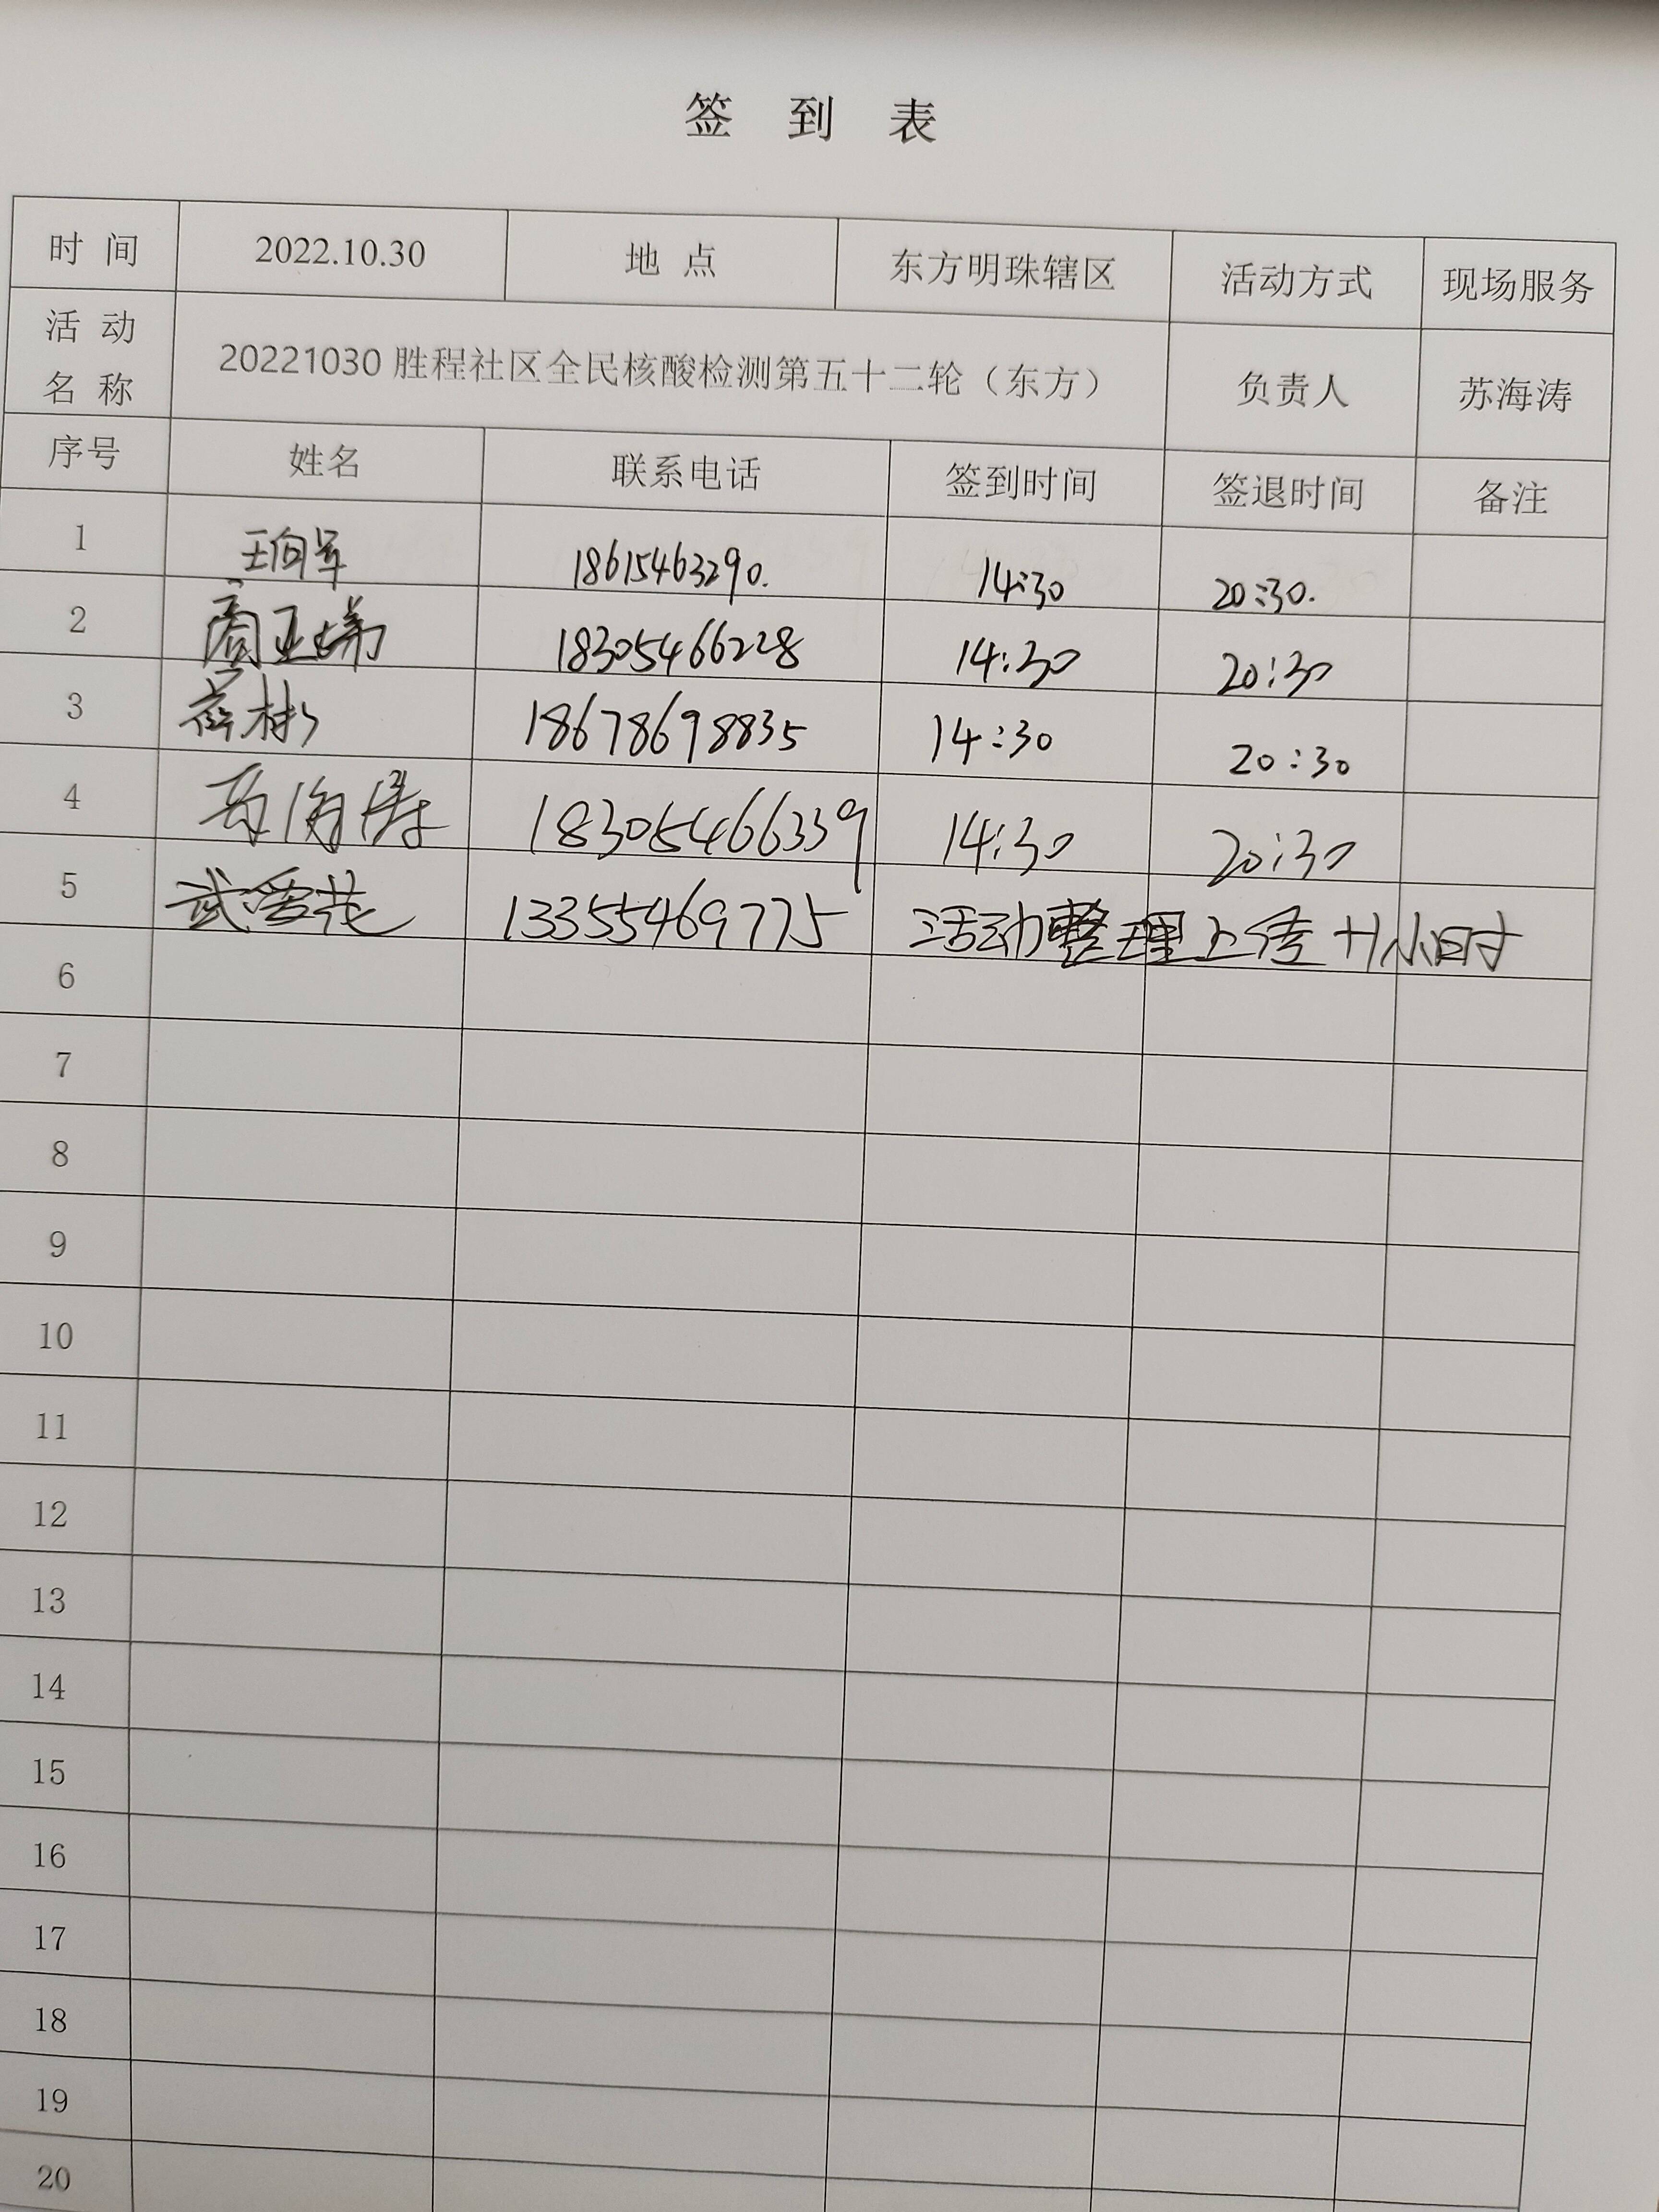 签 到 表
时 间 2022.10.30 地 点 东方明珠辖区 活动方式 现场服务
活 动 名 称 20221030 胜程社区全民核酸检测第五十二轮（东方） 负责人 苏海涛
序号 姓名 联系电话 签到时间 签退时间 备注
1 王向军 18615463290. 14:30 20:30.
2 商亚娣 18305466228 14:30 20:30
3 18678698835 14:30 20:30
4 18305466339 14:30 20:30
5 武雪花 13355469775 活动整理上传 +1小时
6
7
8
9
10
11
12
13
14
15
16
17
18
19
20